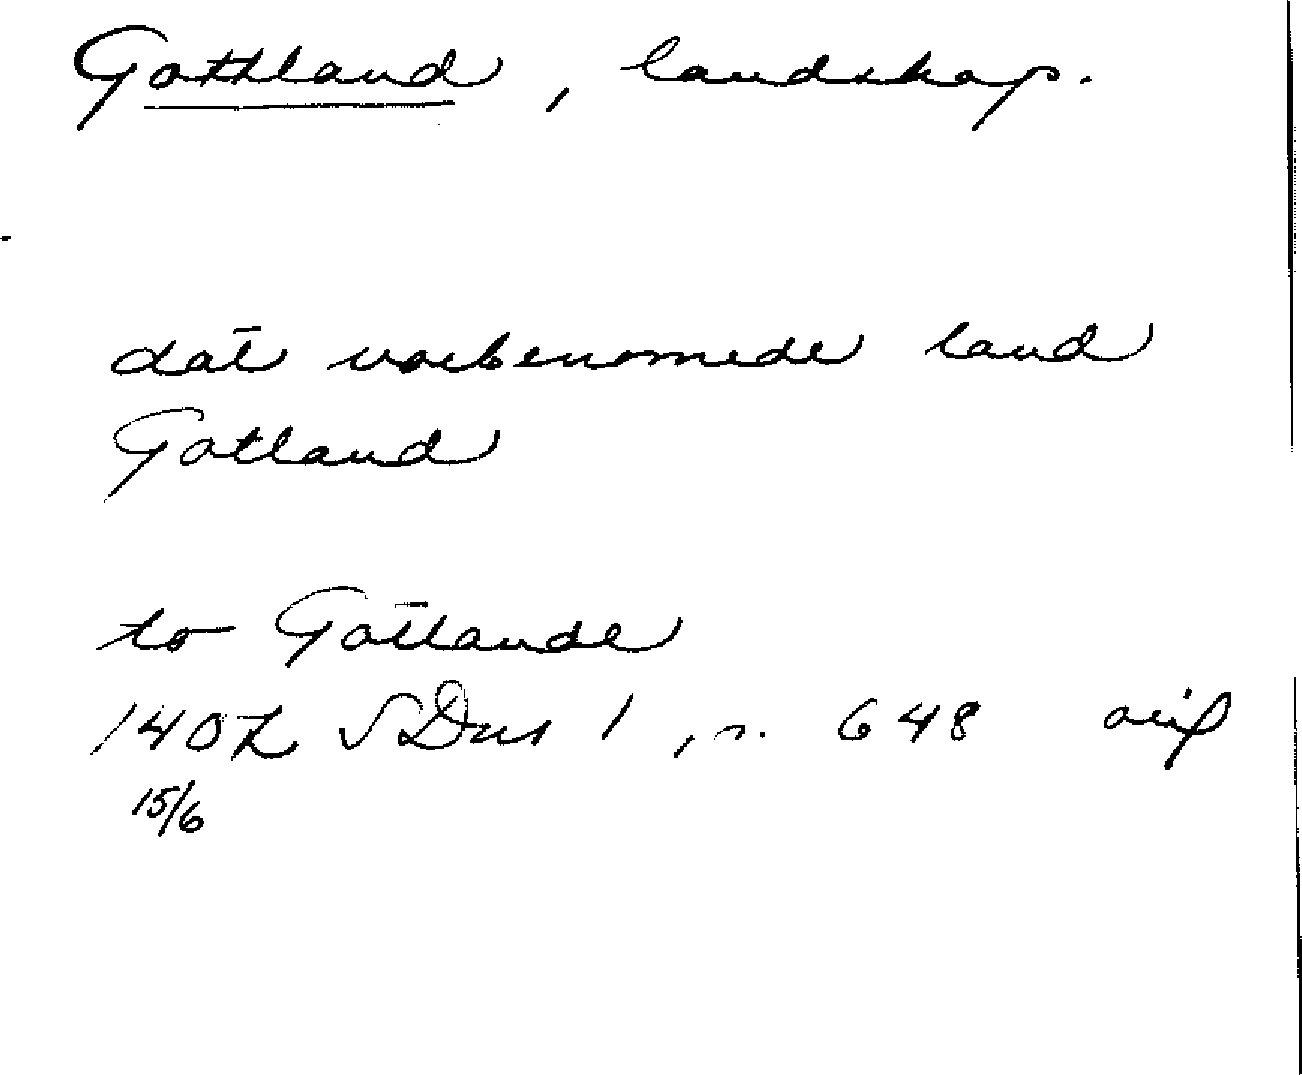 Gothland, landskap.
dat vorbenomede land
Gotland
to Gotlande
1407 SDns 1, n. 648 avskr
15/6